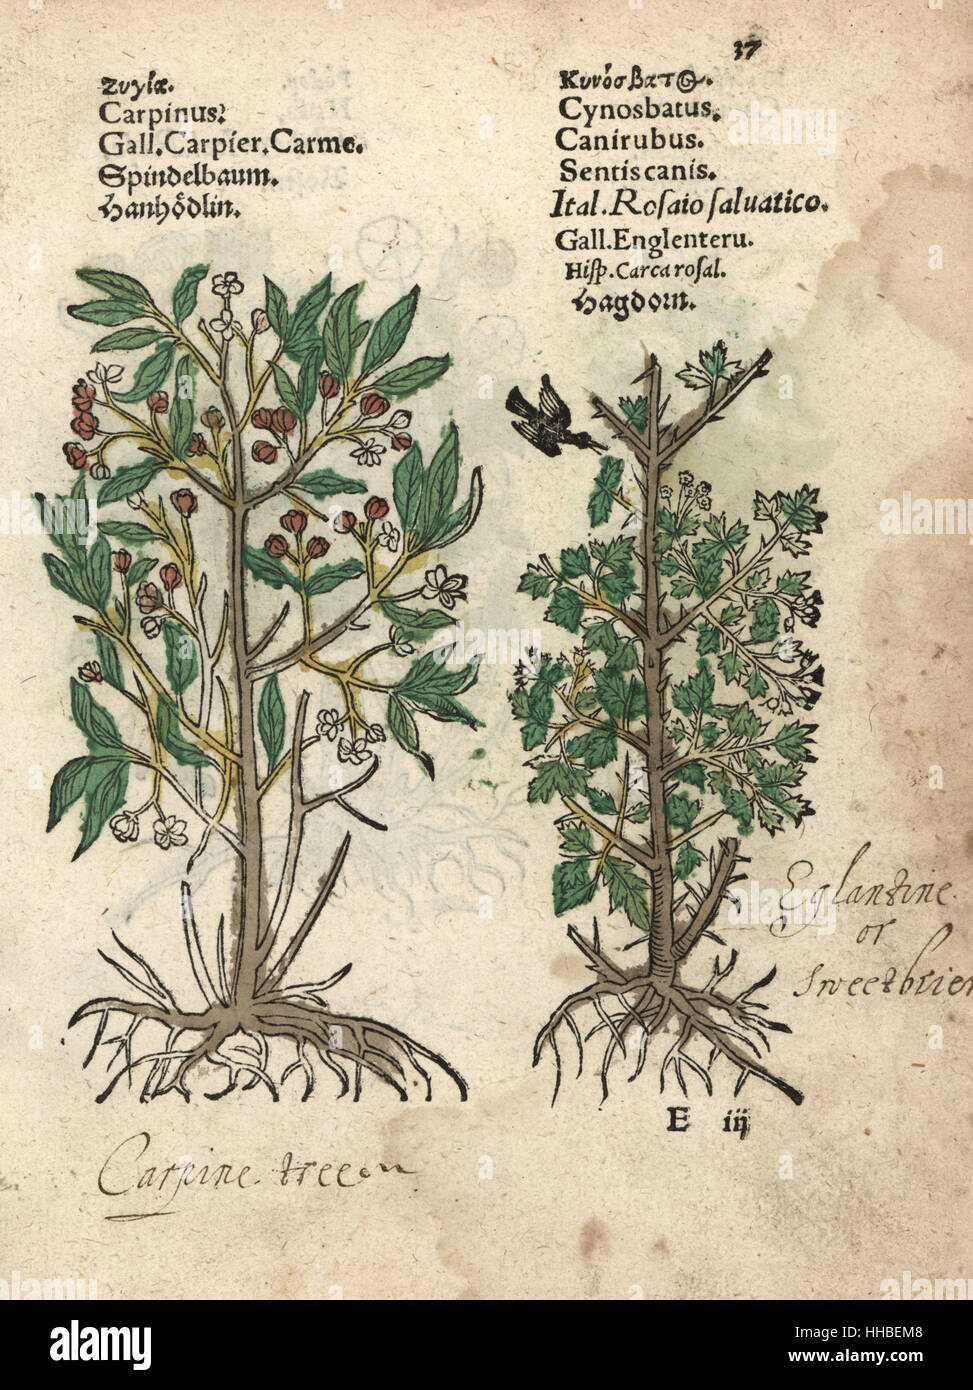 37
Ζυγία.
Carpinus?
Gall.Carpier.Carme.
Spindelbaum.
Hanhödlin.
Κυνόσβατος.
Cynosbatus.
Canirubus.
Sentiscanis.
Ital.Rosaio saluatico.
Gall.Englenteru.
Hisp.Carcarosal.
Hagdorn.
Eglantine
or
sweetbrier
E iij
Carpine tree
alamy
Image ID: HHBEM8
www.alamy.com